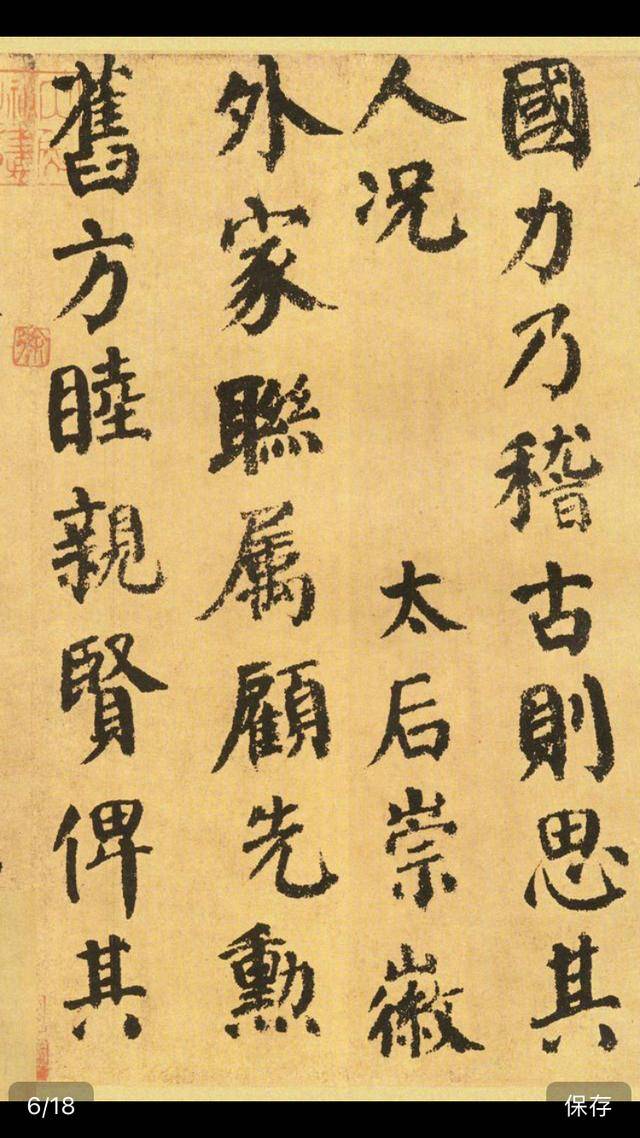 國力乃稽古則思其
人况 太后崇徽
外家聯属顧先勳
舊方睦親賢俾其
6/18
保存